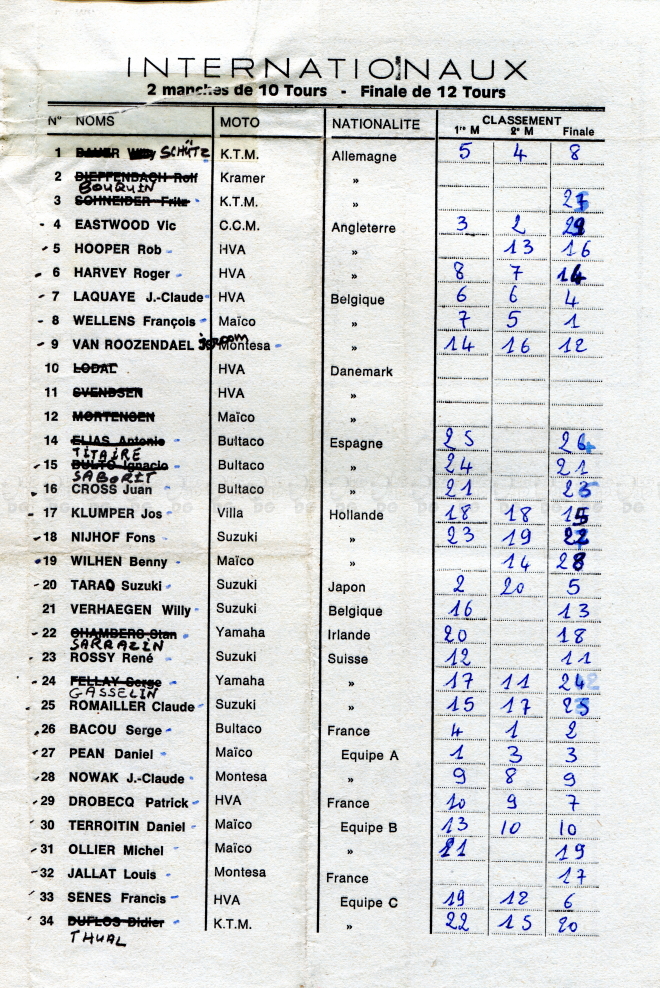 INTERNATIONAUX
2 manches de 10 Tours - Finale de 12 Tours
N° NOMS MOTO NATIONALITE CLASSEMENT
1re M 2e M Finale
1 SCHÜTZ K.T.M. Allemagne 5 4 8
2 DIEFFENBACH Rolf Kramer »
BOURQUIN
3 SCHNEIDER Fritz K.T.M. »
4 EASTWOOD Vic C.C.M. Angleterre 3 2
5 HOOPER Rob HVA » 13 16
6 HARVEY Roger HVA » 8 7 14
7 LAQUAYE J.-Claude HVA Belgique 6 6 4
8 WELLENS François Maïco » 7 5 1
9 VAN ROOZENDAEL Montesa » 14 16 12
10 LODAL HVA Danemark
11 SVENDSEN HVA »
12 MORTENSEN Maïco »
14 ELIAS Antonio Bultaco Espagne 25
TITAIRE
15 BULTO Ignacio Bultaco » 24 21
SABORIT
16 CROSS Juan Bultaco » 21
17 KLUMPER Jos Villa Hollande 18 18 15
18 NIJHOF Fons Suzuki » 23 19 22
19 WILHEN Benny Maïco » 14 28
20 TARAO Suzuki Suzuki Japon 2 20 5
21 VERHAEGEN Willy Suzuki Belgique 16 13
22 CHAMBERS Stan Yamaha Irlande 20 18
SARRAZIN
23 ROSSY René Suzuki Suisse 12 11
24 FELLAY Serge Yamaha » 17 11
GASSELIN
25 ROMAILLER Claude Suzuki » 15 17
26 BACOU Serge Bultaco France 4 1 2
27 PEAN Daniel Maïco Equipe A 1 3 3
28 NOWAK J.-Claude Montesa » 9 8 9
29 DROBECQ Patrick HVA France 10 9 7
30 TERROITIN Daniel Maïco Equipe B 13 10 10
31 OLLIER Michel Maïco » 11 19
32 JALLAT Louis Montesa France 17
33 SENES Francis HVA Equipe C 19 12 6
34 DUFLOS Didier K.T.M. » 22 15 20
THUAL